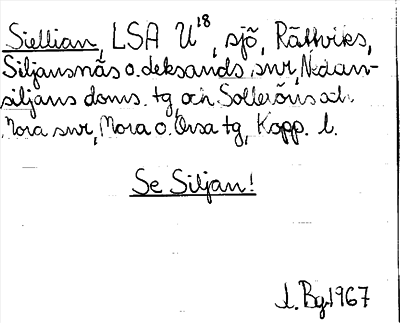 Siellian, LSA U¹⁸, sjö, Rättviks,
Siljansnäs o. Leksands snr, Nedan-
siljans doms. tg, och Solleröns och
Mora snr, Mora o. Orsa tg, Kopp. l.
Se Siljan!
l. Bg. 1967